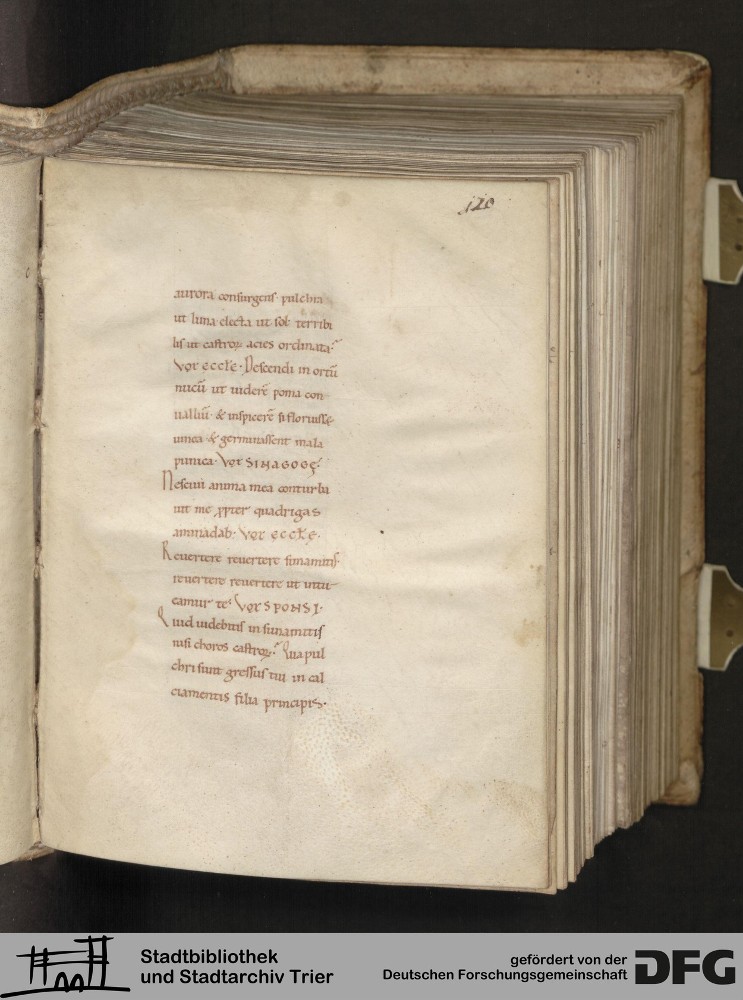 120
aurora consurgens pulchra
ut luna electa ut sol terribi
lis ut castroꝝ acies ordinata?
Vox eccłe. Descendi in ortū
nucū ut uiderē poma con
ualliū. & inspicerē si floruisse
uinea & germinassent mala
punica. Vox SINAGOGę
Nesciui anima mea conturba
uit me ꝓpter quadrigas
aminadab: Vox eccłe.
Reuertere reuertere sunamitis
reuertere reuertere ut intu
eamur te. Vox SPONSI.
Quid uidebitis in sunamitis
nisi choros castroꝝ? Qua pul
chri sunt gressus tui in cal
ciamentis filia principis.
Stadtbibliothek
und Stadtarchiv Trier
gefördert von der
Deutschen Forschungsgemeinschaft
DFG